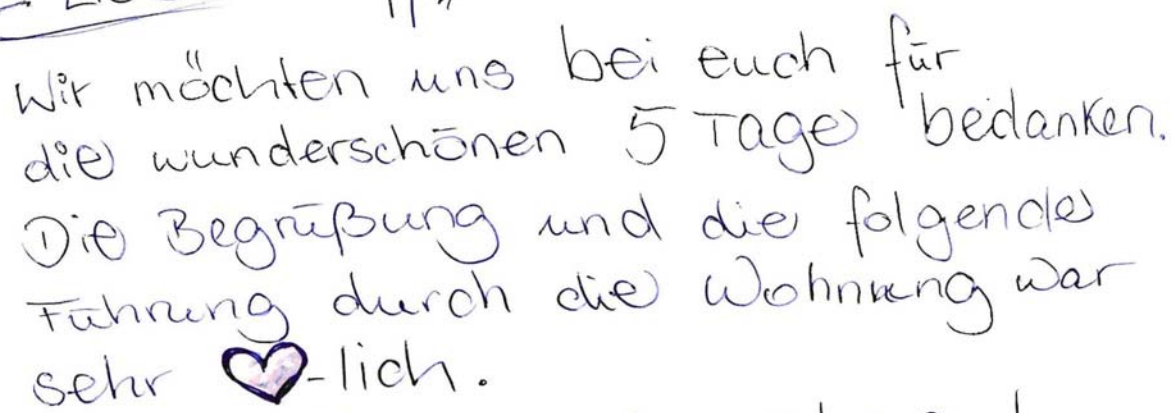 Wir möchten uns bei euch für
die wunderschönen 5 Tage bedanken.
Die Begrüßung und die folgende
Führung durch die Wohnung war
sehr ♥-lich.